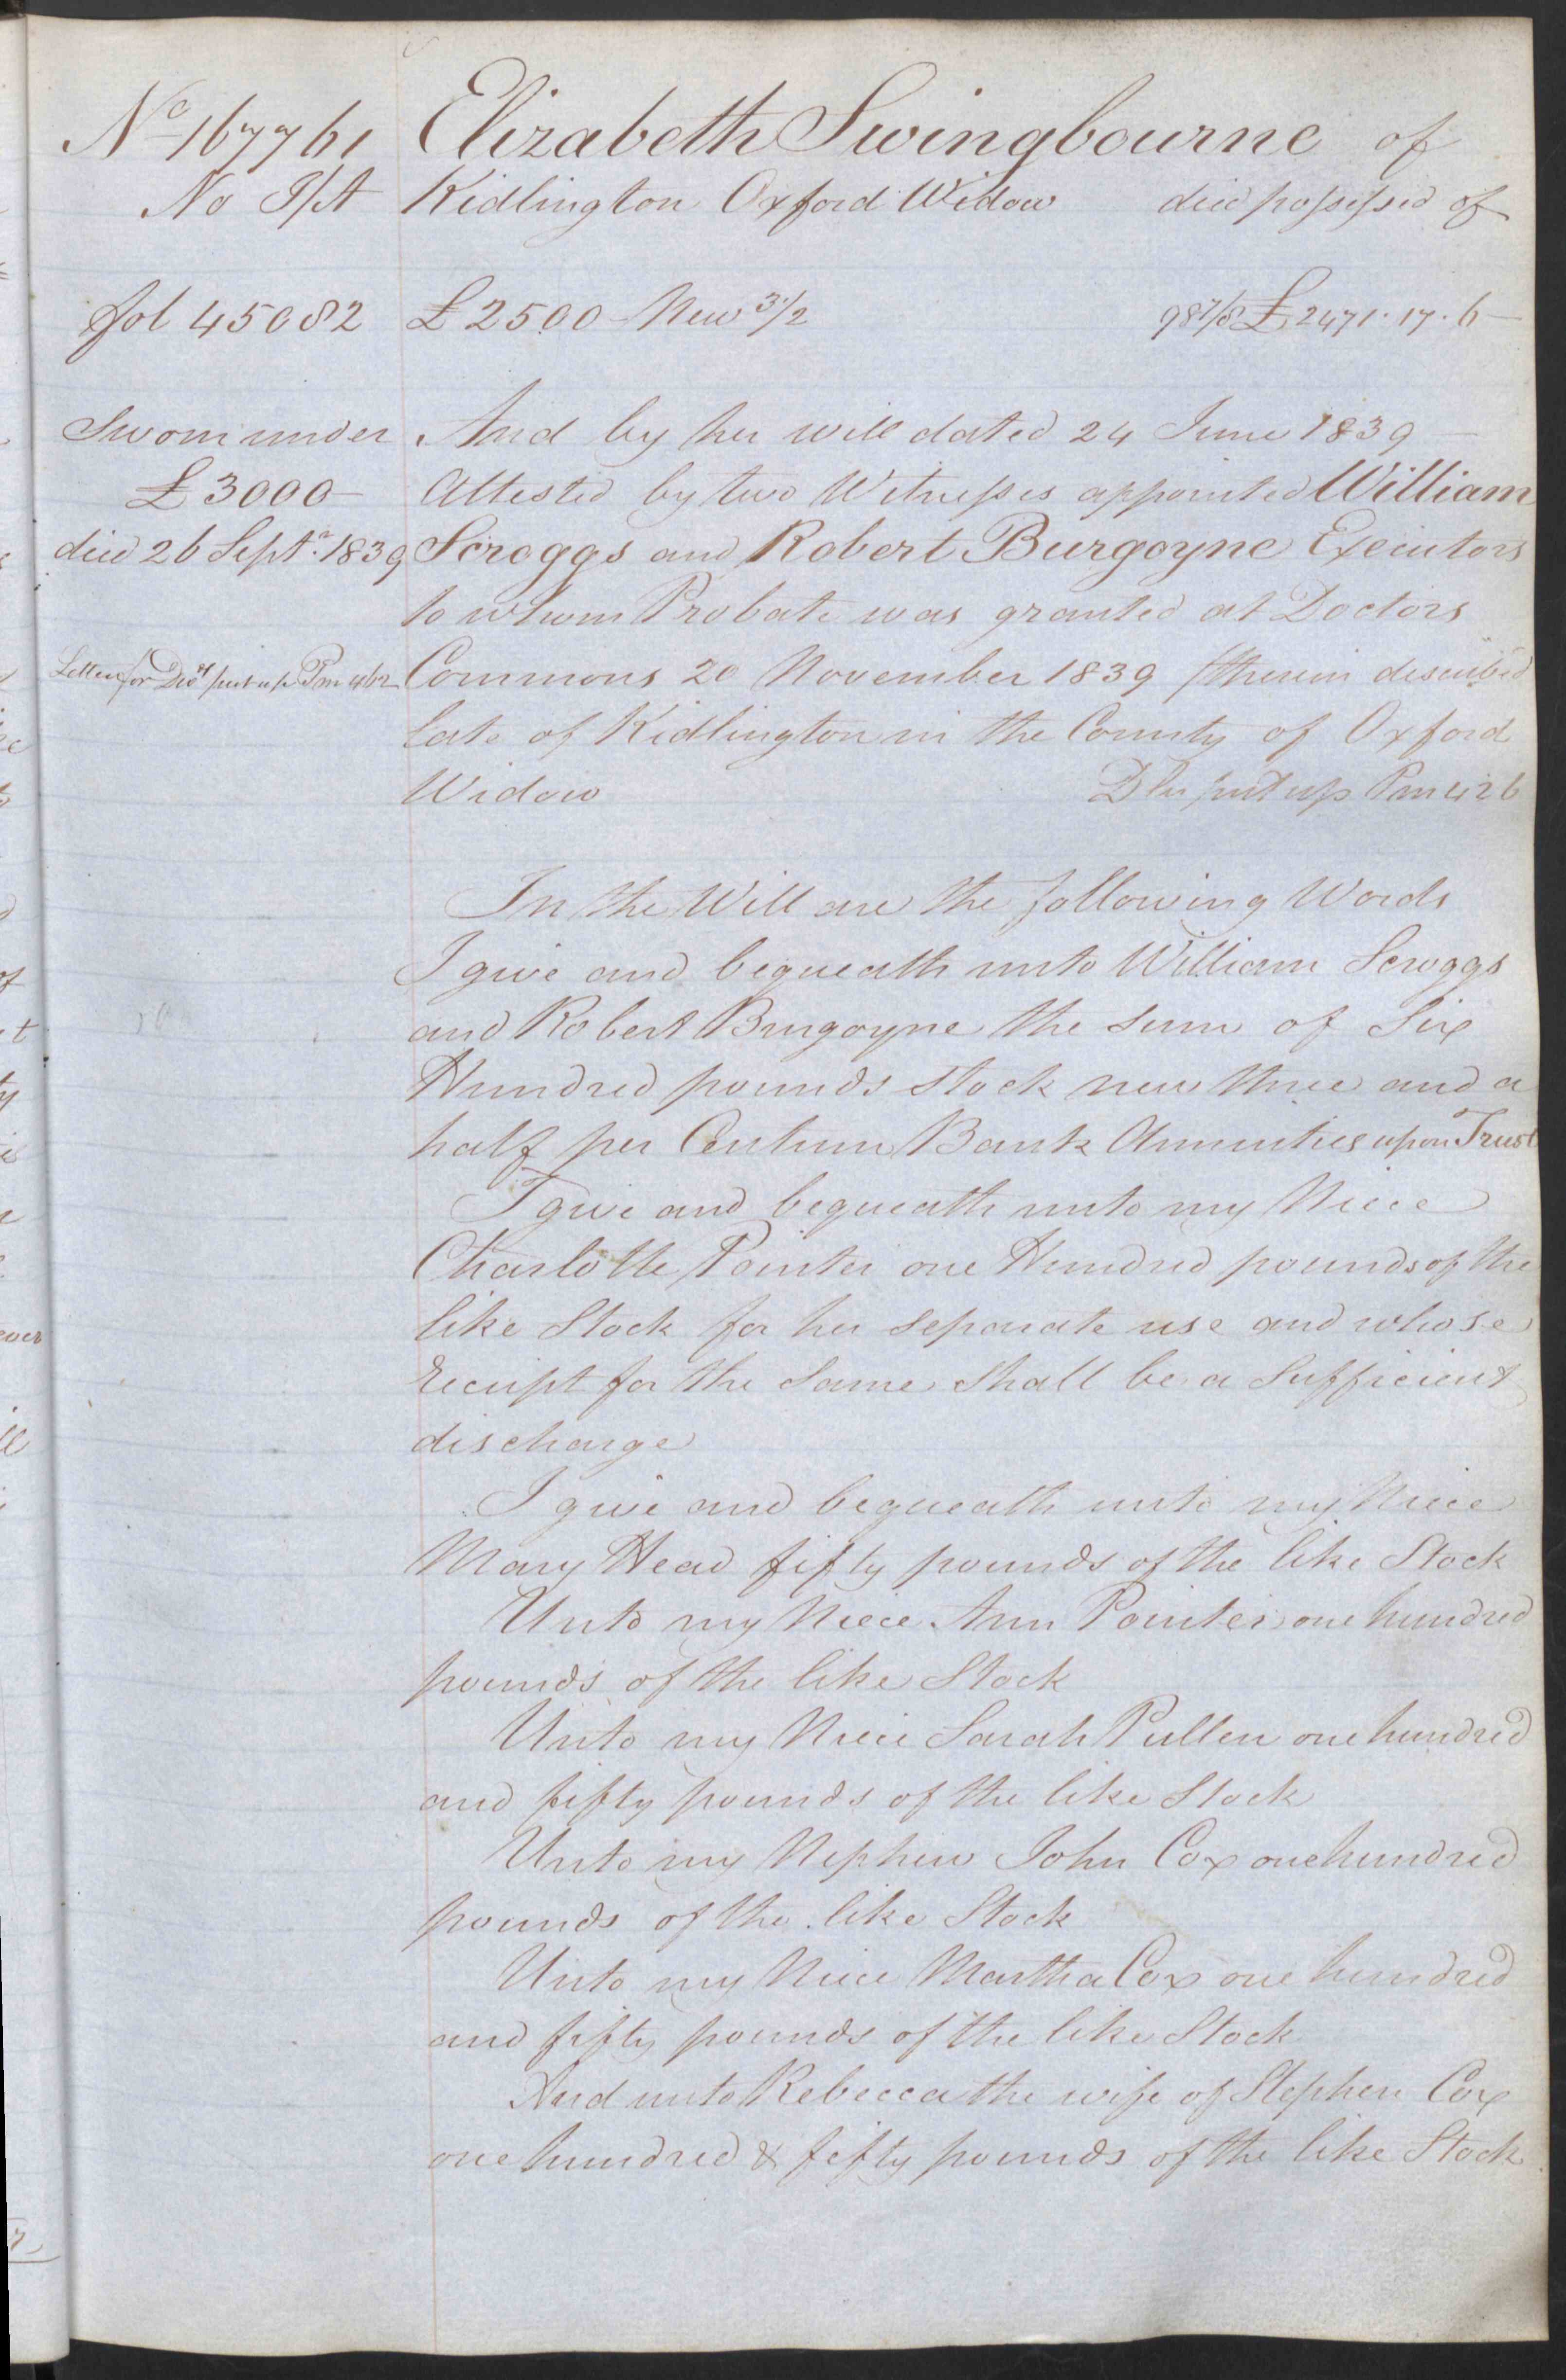 No 167761 Elizabeth Swingbourne of
No I/A Kidlington Oxford Widow died possessed of
fol 45082 £2500 New 3½ 98⅞ £2471.17.6
Sworn under And by her will dated 24 June 1839
£3000 Attested by two Witnesses appointed William
died 26 Septr. 1839 Scroggs and Robert Burgoyne Executors
to whom Probate was granted at Doctors
Letter for put up Pm 462 Commons 20 November 1839 /therein described
late of Kidlington in the County of Oxford
Widow put up Pm 426
In the Will are the following Words
I give and bequeath unto William Scroggs
and Robert Burgoyne the sum of Six
Hundred pounds stock new three and a
half per Centum Bank Annuities upon Trust
I give and bequeath unto my Niece
Charlotte Pointer one Hundred pounds of the
like Stock for her separate use and whose
receipt for the same shall be a Sufficient
discharge
I give and bequeath unto my Niece
Mary Head fifty pounds of the like Stock
Unto my Niece Ann Pointer one hundred
pounds of the like Stock
Unto my Niece Sarah Pullen one hundred
and fifty pounds of the like Stock
Unto my Nephew John Cox one hundred
pounds of the like Stock
Unto my Niece Martha Cox one hundred
and fifty pounds of the like Stock
And unto Rebecca the wife of Stephen Cox
one hundred & fifty pounds of the like Stock